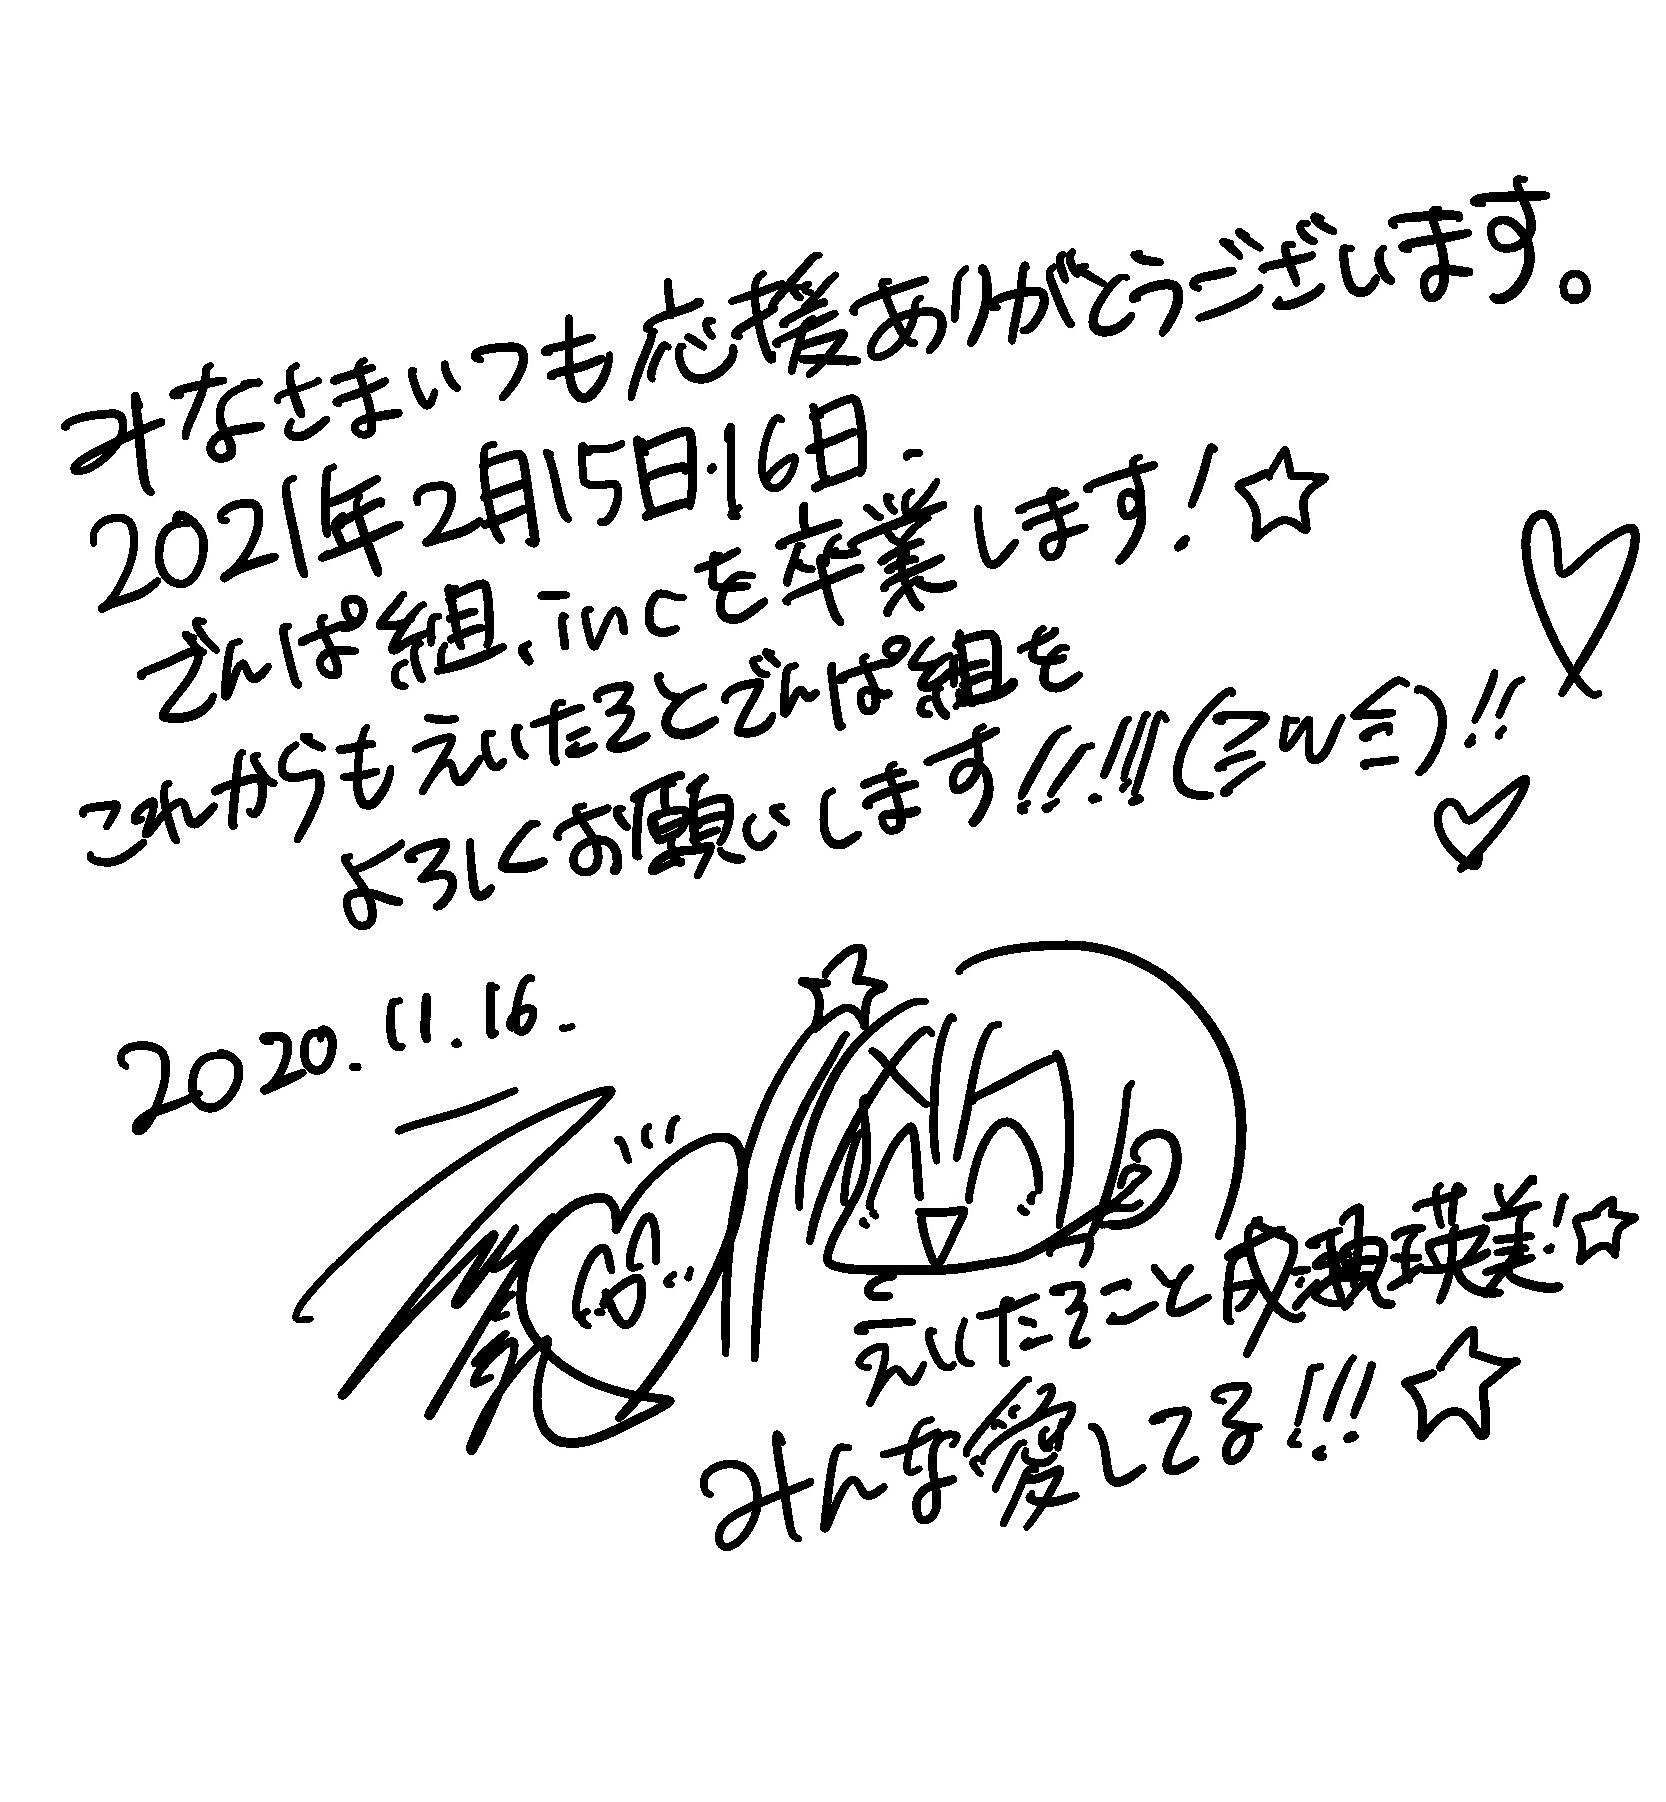 みなさまいつも応援ありがとうございます。
2021年2月15日・16日.
でんぱ組.incを卒業します!☆
これからもえいたそとでんぱ組を
よろしくお願いします!!!!!(≧ω≦)!!
2020.11.16.
えいたそこと成瀬瑛美!☆
みんな愛してる!!!☆